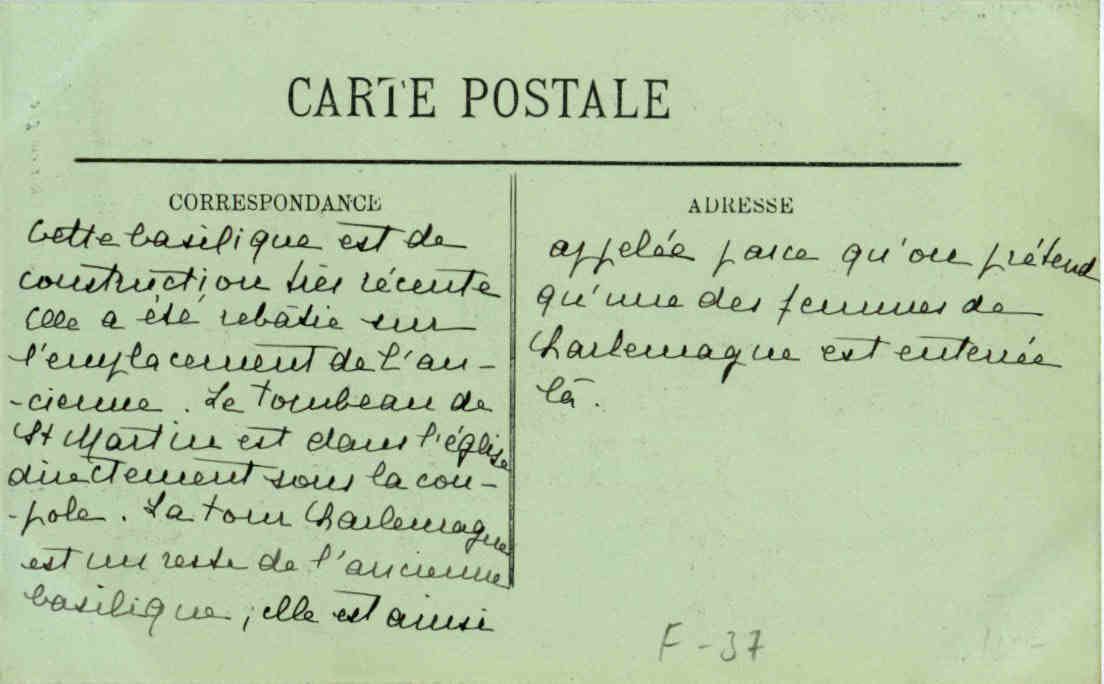 CARTE POSTALE
CORRESPONDANCE
Cette basilique est de
construction très récente
elle a été rebâtie sur
l'emplacement de l'an-
-cienne. Le tombeau de
St Martin est dans l'église
directement sous la cou-
-pole. La tour Charlemagne
est un reste de l'ancienne
basilique, elle est ainsi
ADRESSE
appelée parce qu'on prétend
qu'une des femmes de
Charlemagne est enterrée
là.
F-37